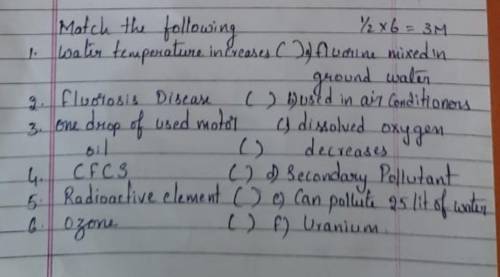 Match the following ½ x 6 = 3M
1. Water temperature increases ( ) a) fluorine mixed in
ground water
2. Fluorosis Disease ( ) b) used in air conditioners
3. one drop of used motor c) dissolved oxygen
oil ( ) decreases
4. CFCS ( ) d) Secondary Pollutant
5. Radioactive element ( ) e) Can pollute 25 lit of water
6. Ozone ( ) f) Uranium